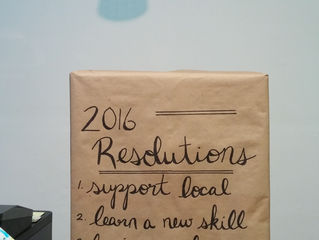 2016
Resolutions
1. support local
2. learn a new skill